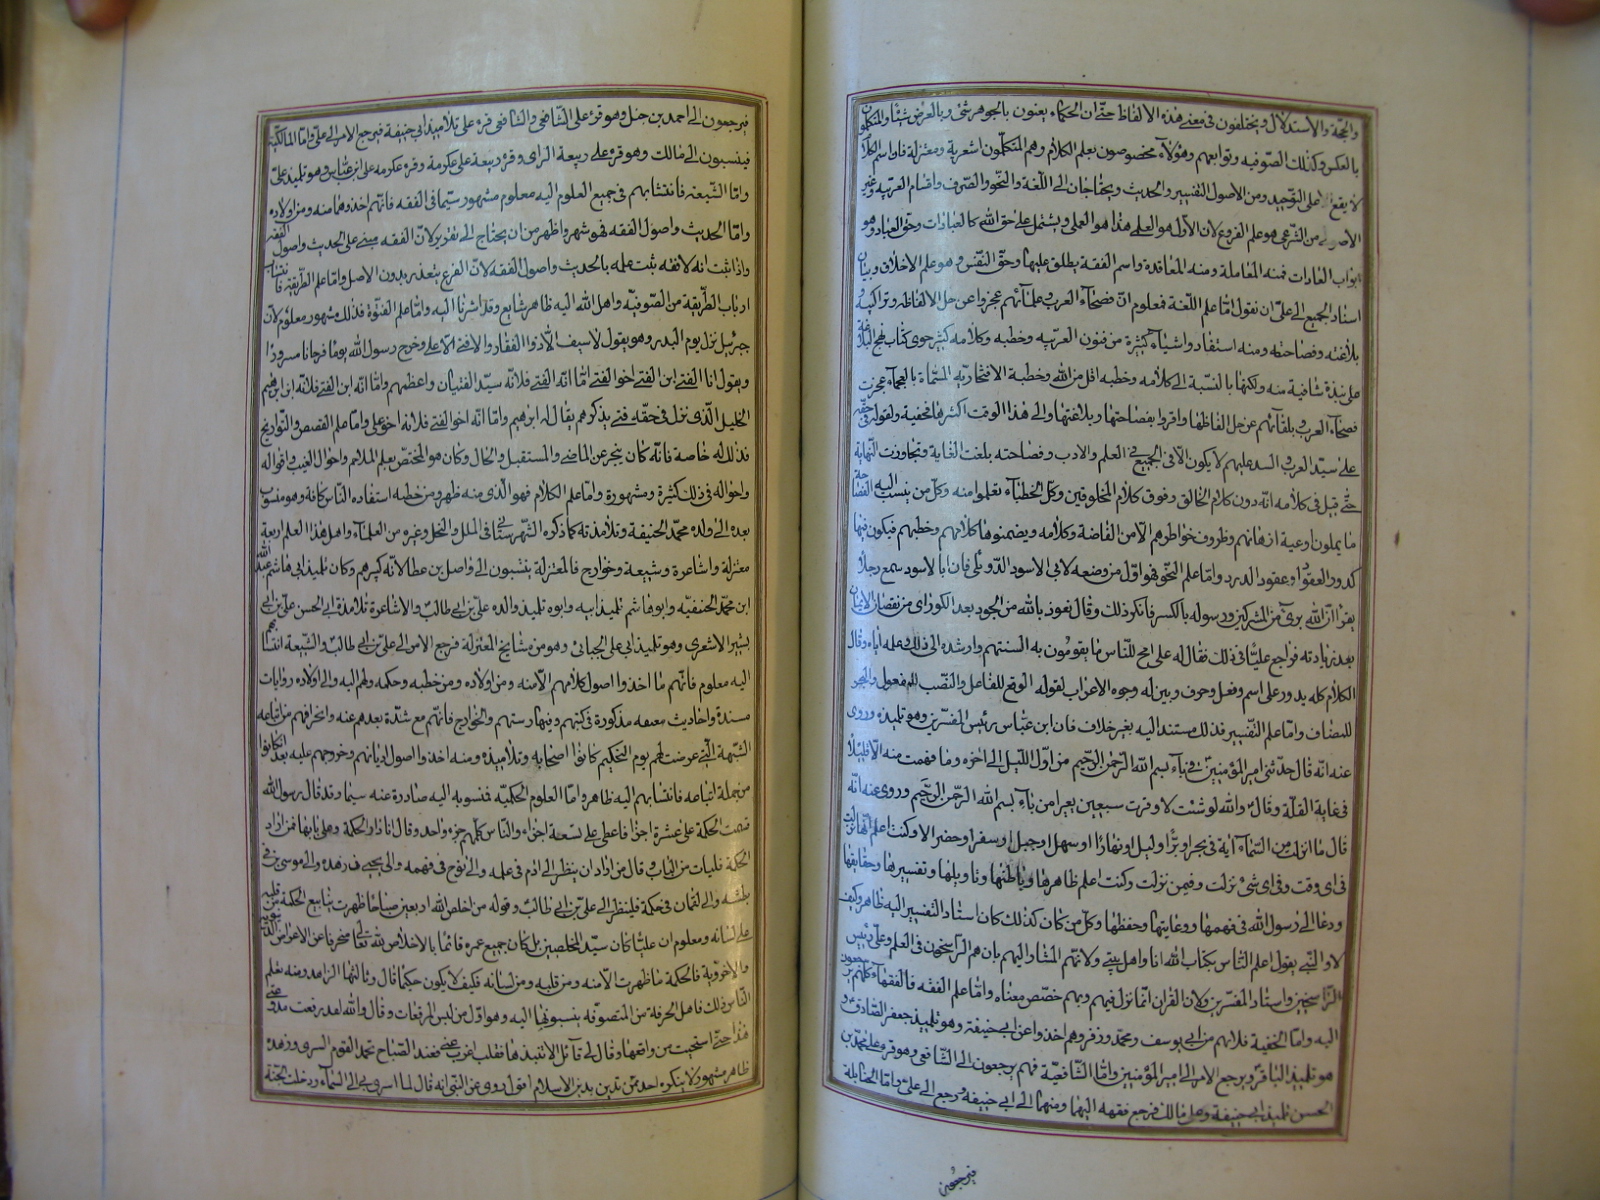 والحجة والاستدلال ويختلفون في معنى هذه الالفاظ حتى ان الحكماء يعنون بالجوهر شيئا وبالعرض شيئا والمتكلمون
بالعكس وكذلك الصوفيه وتوابعهم وهؤلاء مخصوصون بعلم الكلام وهم المتكلمون اشعرية ومعتزلة فان اسم الكلام
لا يقع الا على التوحيد ومن الاصول التفسير والحديث ويحتاجان الى اللغة والنحو والصرف واقسام العربيه وغير
الاصولى من الشرعى هو علم الفروع لان الاول هو العلمى هذا هو العملى ويشتمل على حق الله كالعبادات وحق العباد وهو
ابواب العادات فمنه المعاملة ومنه المعاقدة واسم الفقه يطلق عليها وحق النفس وهو علم الاخلاق وبيان
اسناد الجميع الى على ان نقول امّا علم اللغة فمعلوم انّ فصحاء العرب وعلمائهم عجزوا عن حل الالفاظه وتراكيبه و
بلاغته وفصاحته ومنه استفاد واشياء كثيرة من فنون العربيه وخطبه وكلامه كثير حوى كتاب نهج البلاغة
على نبذة شافية منه ولكنها بالنسبة الى كلامه وخطبه اقل من الله وخطبة الافتخاريه المسماة بالعجماء عجزت
فصحاء العرب وبلغائهم عن حل الفاظها واقروا بفصاحتها وبلاغتها والى هذا الوقت اكثرها مخفية ولقوله في حقه
على سيد العرب والسيد عليهم لا يكون الا في الجميع في العلم والادب وفصاحته بلغت الغاية وتجاوزت النهاية
حتى قيل في كلامه انه دون كلام الخالق وفوق كلام المخلوقين وكل الخطباء تعلموا منه وكل من ينسب اليه الفصاحة
ما يملون اوعية اذهانهم وظروف خواطرهم الا من الفاضه وكلامه ويضمنوها كلامهم وخطبهم فيكون فيها
كدور العقود وعقود الدرر وامّا علم النحو فهو اول من وضعه لابى الاسود الدؤلى فان ابا الاسود سمع رجلا
يقرا انّ الله برئ من المشركين ورسوله بالكسر فانكر ذلك وقال نعوذ بالله من الجود بعد الكور اى من نقصان الايمان
بعد زيادته فراجع عليّا في ذلك فقال له على انح للناس ما يقومون به السنتهم وارشده الى ذلك وعلمه اياه وقال
الكلام كله يدور على اسم وفعل وحرف وبين له وجوه الاعراب لقوله الرفع للفاعل والنصب للمفعول والجر
للمضاف وامّا علم التفسير فذلك مستند اليه بغير خلاف فان ابن عباس رئيس المفسرين وهو تلميذه وروى
عنه انه قال حدثنى امير المؤمنين في باء بسم الله الرحمن الرحيم من اول الليل الى اخره وما فهمت منه الا قليلا
في غاية القلة وقال والله لو شئت لاوقرت سبعين بعيرا من باء بسم الله الرحمن الرحيم وروى عنه انه
قال ما انزلت من السماء اية في بحر او برّ او ليل او نهار او سهل او جبل او سفر او حضر الا وكنت اعلم انها نزلت
في اى وقت وفى اى شئ نزلت وفيمن نزلت وكنت اعلم ظاهرها وباطنها وتاويلها وتفسيرها وحقايقها
ودعا لى رسول الله في فهمها ووعايتها وحفظها وكل من كان كذلك كان اسناد التفسير اليه ظاهر وكيف
لا والنبى يقول اعلم الناس بكتاب الله انا واهل بيتى ولانهم المشار اليهم بان هم الراسخون في العلم وعلى رئيس
الراسخين واسناد المفسرين ولان القران انما نزل فيهم وبهم خصص معناه وامّا علم الفقه فالفقهاء كلهم يرجعون
اليه وامّا الحنفية فلانهم من ابى يوسف ومحمد وزفر وهم اخذوا عن ابى حنيفة وهو تلميذ جعفر الصادق و
هو تلميذ الباقر ويرجع الامر الى امير المؤمنين وامّا الشافعية فهم يرجعون الى الشافعى وهو قرء على محمد بن
الحسن تلميذ ابى حنيفة وعلى مالك فرجع فقهه اليهما ومنهما الى ابى حنيفة ورجع الى على وامّا الحنابلة
فيرجعون
فيرجعون الى احمد بن حنبل وهو قرء على الشافعى والشافعى قرء على تلاميذ ابى حنيفة فيرجع الامر الى على وامّا المالكية
فينسبون الى مالك وهو قرء على ربيعة الراى وقرء ربيعة على عكرمة وقرء عكرمة على ابن عباس وهو تلميذ على
وامّا الشيعة فانتسابهم في جميع العلوم اليه معلوم مشهور سيّما في الفقه فانهم اخذوها منه ومن اولاده
وامّا الحديث واصول الفقه فهو شهر واظهر من ان يحتاج الى تقرير لان الفقه مبنى على الحديث واصول الفقه
واذا ثبت انه لافقه ثبت علمه بالحديث واصول الفقه لان الفرع يتعذر بدون الاصل وامّا علم الطريقة فانتساب
ارباب الطريقة من الصوفيّه واهل الله اليه ظاهر شايع وقد اشرنا اليه وامّا علم الفتوة فذلك مشهور معلوم لان
جبرئيل نزل يوم البدر وهو يقول لا سيف الا ذو الفقار ولا فتى الا على وخرج رسول الله يوما فرحانا مسرورا
ويقول انا الفتى ابن الفتى اخو الفتى امّا انه الفتى فلانه سيّد الفتيان واعظمهم وامّا انه ابن الفتى فلانه ابن ابرهيم
الخليل الذى نزل في حقه فتى يذكرهم يقال له ابرهيم وامّا انه اخو الفتى فلانه اخو على وامّا علم القصص والتواريخ
فذلك له خاصة فانه كان يخبر عن الماضى والمستقبل والحال وكان هو المختص بعلم الملاحم واحوال الغيب واقواله
واحواله في ذلك كثيرة ومشهورة وامّا علم الكلام فهو الذى منه ظهر ومن خطبه استفاده الناس كافة وهو منسوب
بعده الى ولده محمد الحنيفة وتلامذته كما ذكره الشهرستانى في الملل والنحل وغيره من العلماء واهل هذا العلم اربعة
معتزلة واشاعرة وشيعة وخوارج فالمعتزلة ينتسبون الى واصل بن عطا لانه كبيرهم وكان تلميذ ابى هاشم عبد الله
ابن محمد الحنفيه وابو هاشم تلميذ ابيه وابوه تلميذ والده على بن ابى طالب والاشاعرة تلامذة ابى الحسن على بن ابى
بشير الاشعرى وهو تلميذ ابى على الجبائى وهو من مشايخ المعتزلة فرجع الامر الى على بن ابى طالب والشيعة انتسابهم
اليه معلوم فانهم ما اخذوا اصول كلامهم الا منه ومن اولاده ومن خطبه وحكمه ولهم اليه والى اولاده روايات
مسندة واحاديث مذكورة في كتبهم والخوارج فانهم مع شدة بعدهم عنه وانحرافهم من اتباعه
الشبهة التى عرضت لهم يوم التحكيم كانوا اصحابه وتلاميذه ومنه اخذوا اصول دياناتهم وخروجهم عليه بعد ان كانوا
من جملة اتباعه فانتسابهم اليه ظاهر وامّا العلوم الحكميّه فنسوبه اليه صادرة عنه سيّما وقد قال رسول الله
قسمت الحكمة على عشرة اجزا فاعطى على تسعة اجزاء والناس كلهم جزء واحد وقال انا دار الحكمة وعلى بابها فمن اراد
الحكمة فليات من الباب وقال من اراد ان ينظر الى ادم في علمه والى نوح في فهمه والى يحيى في زهده والى موسى بن في
بطشه والى لقمان في حكمة فلينظر الى على بن ابى طالب وقوله من اخلص لله اربعين صباحا ظهرت ينابيع الحكمة من قلبه
على لسانه ومعلوم ان عليّا كان سيّد المخلصين بل كان جميع عمره قائما بالاخلاص لله تعالى منحرفا عن الاعراض الدنيوية
والاخروية فالحكمة ما ظهرت الا منه ومن قلبه ومن لسانه فكيف لا يكون حكيما قال وثالثها الزاهد ومنه تعلم
الناس ذلك فاهل الحرفة من المتصوفه ينسبونها اليه وهو اول من لبس المرقعات وقال والله لقد رقعت مدرعتى
هذا حتى استحييت من راقعها وقال لى قائل الا تنبذها فقلت اغرب عنى فعند الصباح تحمد القوم السرى وزهده
ظاهر مشهور لا ينكره احد ممن تدين بدين الاسلام اقول روى عن النبى انه قال لما اسرى بى الى السماء ودخلت الجنة